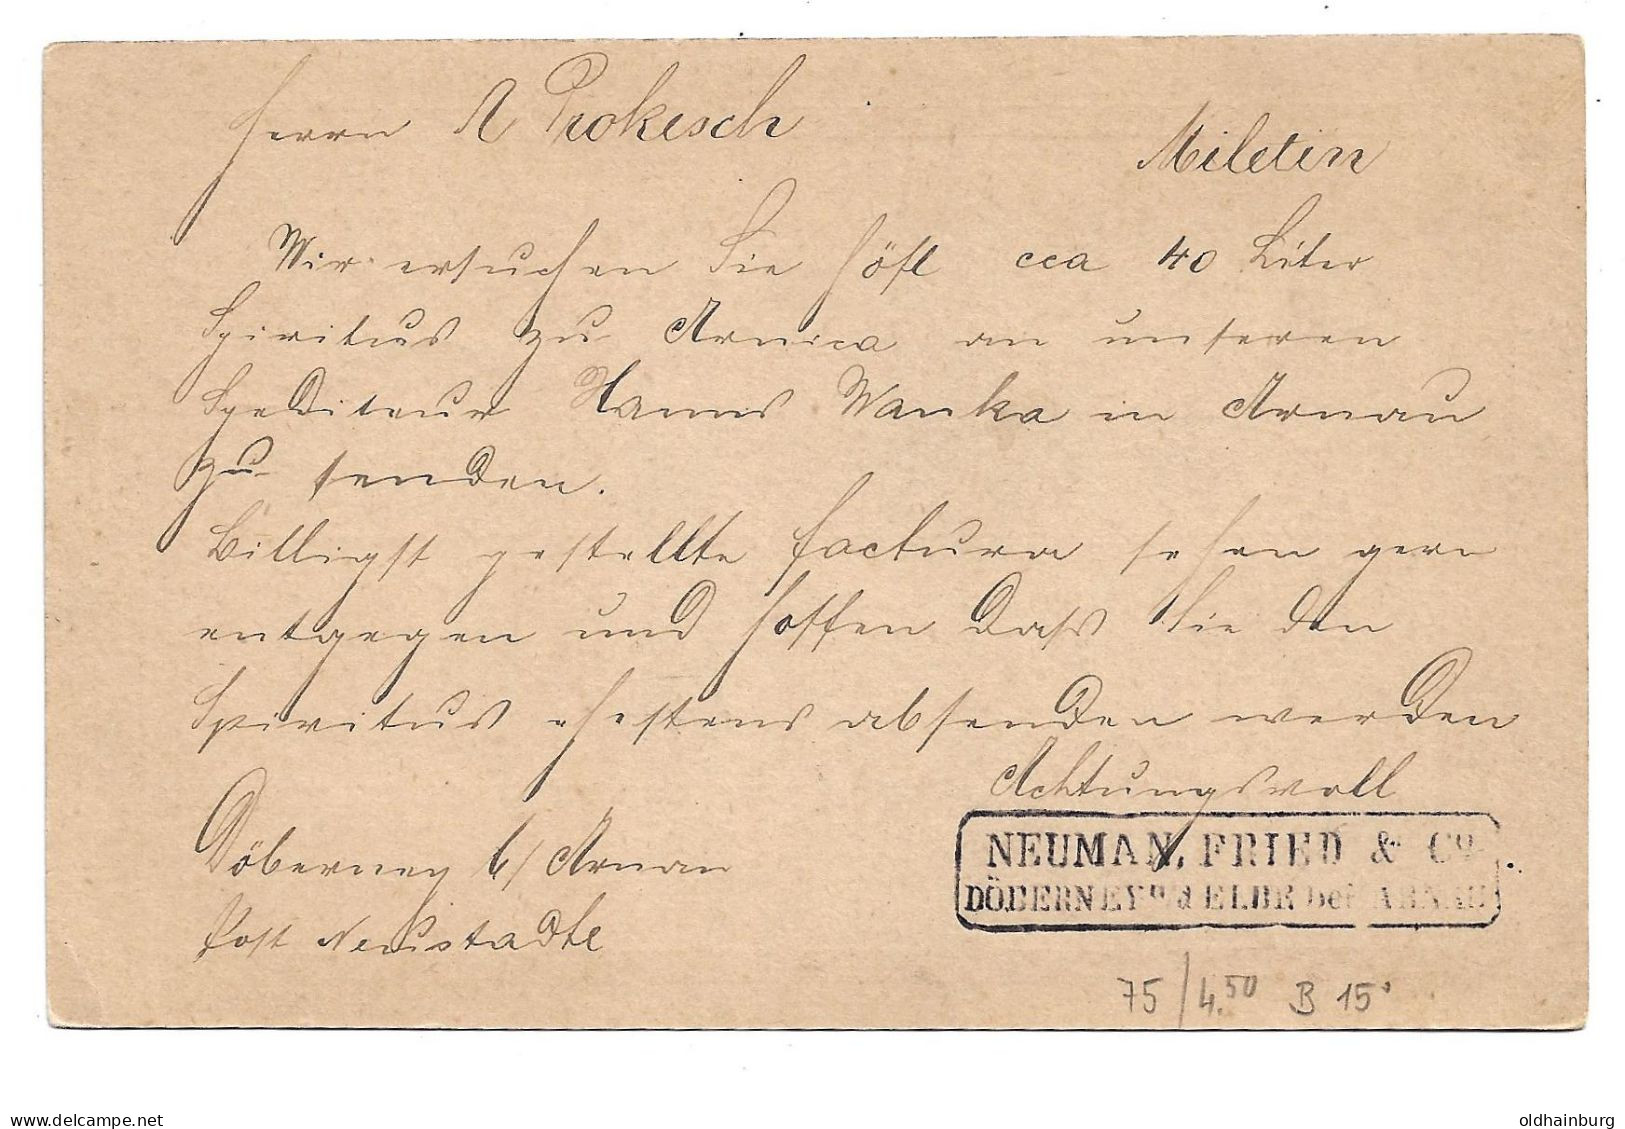 Herrn A Prokesch
Miletin
Wir ersuchen Sie höfl cca 40 Liter
Spiritus zu Arnica an unseren
Spediteur Hanns Wanka in Arnau
zu senden.
Billigst gestellte factura sehen gern
entgegen und hoffen dass Sie den
Spiritus ehestens absenden werden
Achtungsvoll
Döberney b/ Arnau
Post Neustadtl
NEUMAN, FRIED & Co.
DÖBERNEY a/d ELBE bei ARNAU
75/4.50 B 15
www.delcampe.net
oldhainburg